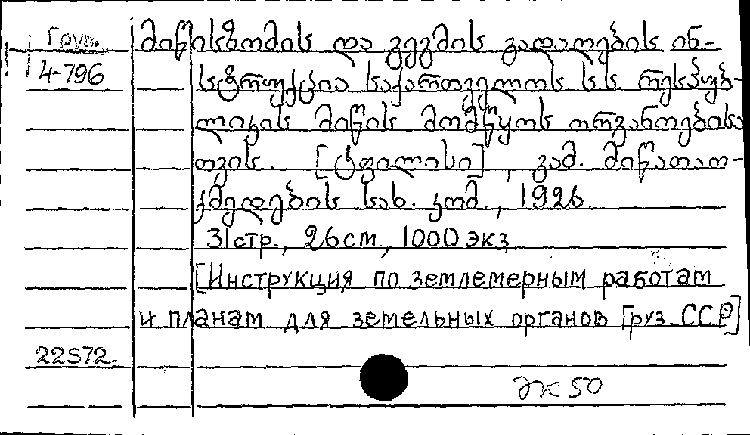 Груз.
4-796
მიწისზომის და გეგმის გადაღების ინ-
სტრუქცია საქართველოს ს.ს. რესპუბ-
ლიკის მიწის მომწყობ ორგანოებისა
თვის. [ტფილისი], გამ. მიწათმო-
ქმედების სახ. კომ., 1926
31 стр., 26 см, 1000 экз
[Инструкция по землемерным работам
и планам для земельных органов Груз. ССР]
22572.
ЭК 50